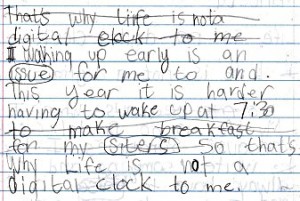 thats why liife is nota
digital clock to me
I Waking up early is an
issue for me to and.
This year it is harder
having to wake up at 7:30
to make breakfast
for my siters So thats
Why Life is not a
digital clock to me.